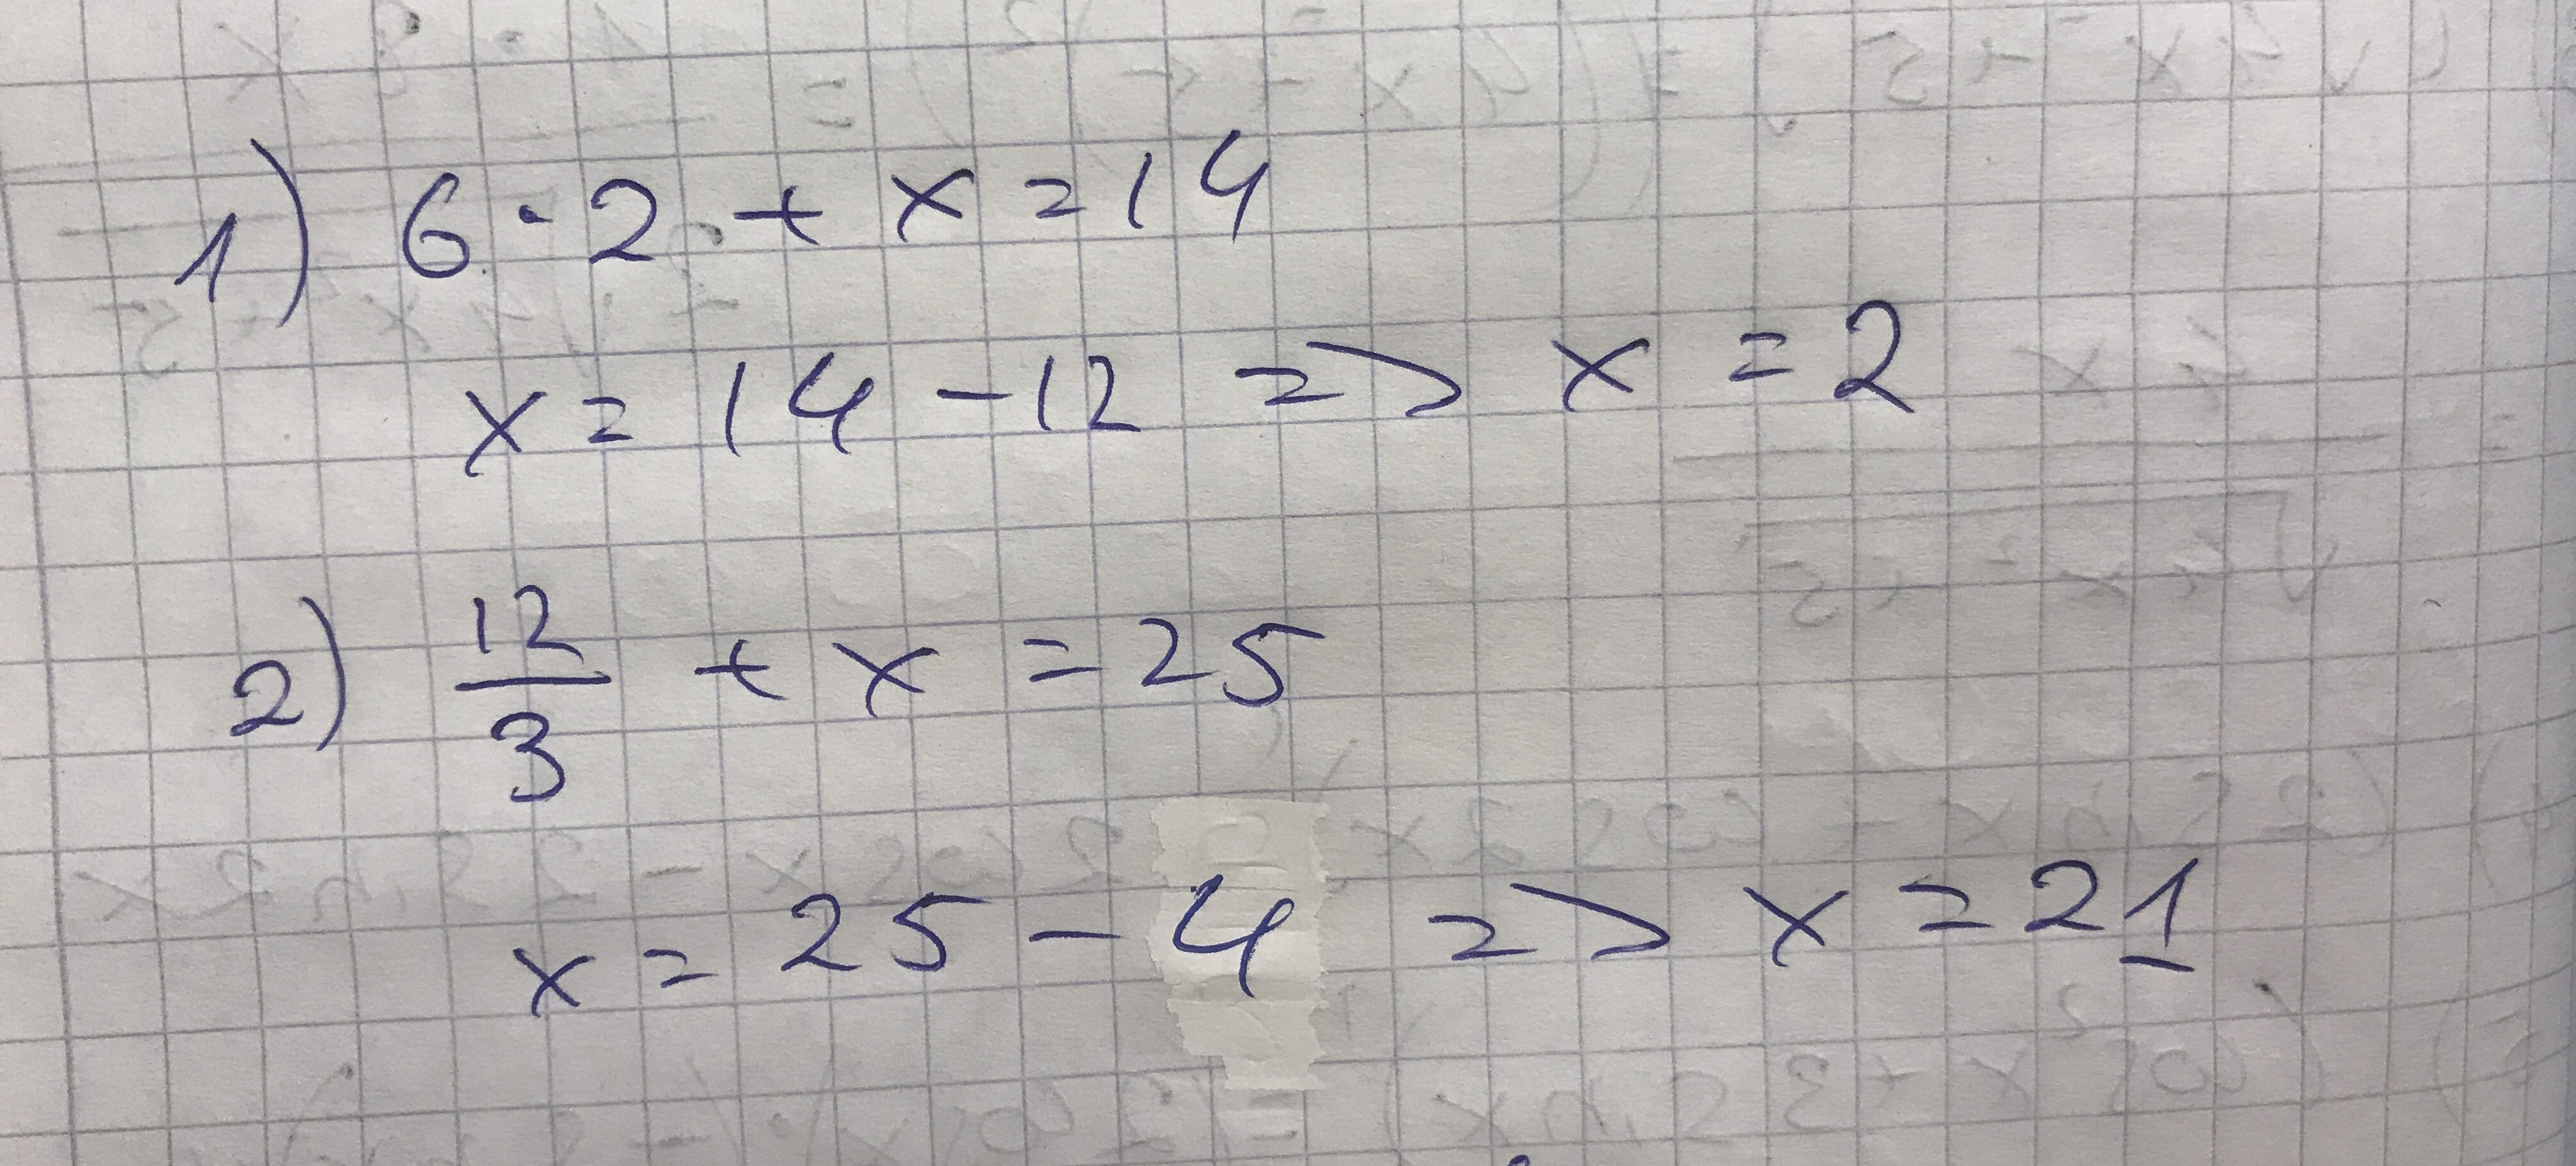 1) 6 · 2 + x = 14
x = 14 - 12 => x = 2
2) 12/3 + x = 25
x = 25 - 4 => x = 21